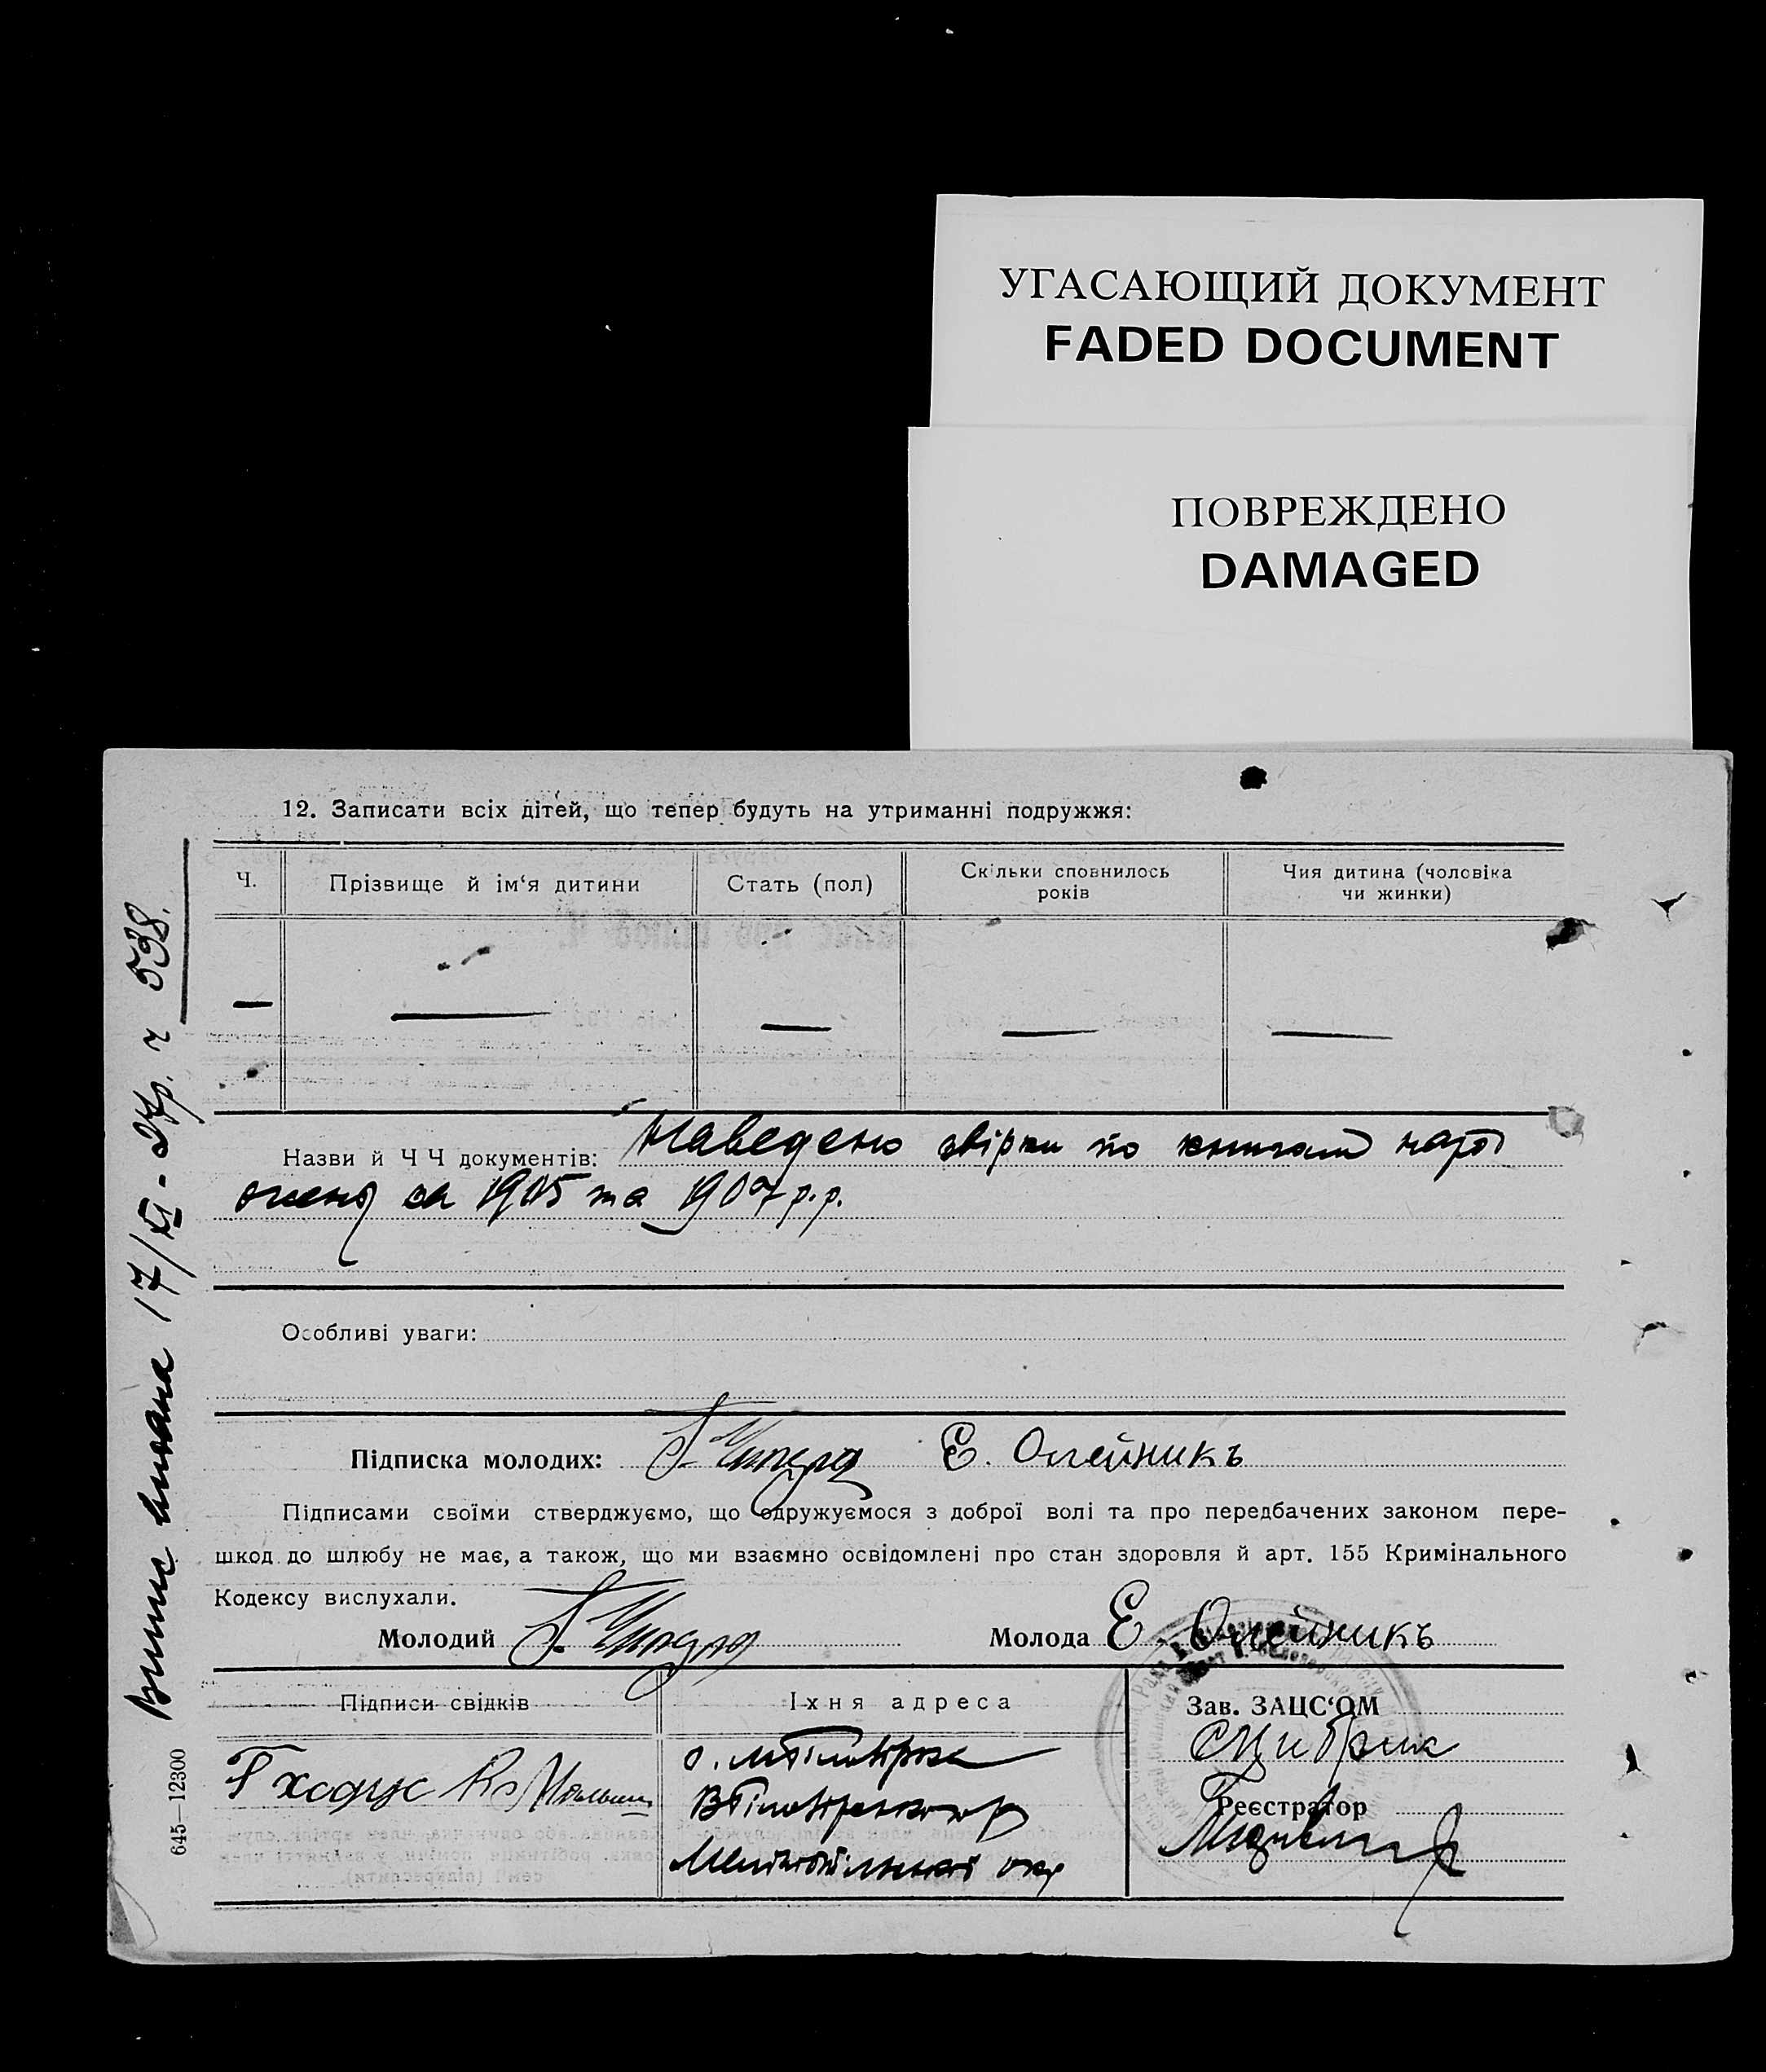 УГАСАЮЩИЙ ДОКУМЕНТ
FADED DOCUMENT
ПОВРЕЖДЕНО
DAMAGED
12. Записати всіх дітей, що тепер будуть на утриманні подружжя:
Ч.
Прізвище й ім‘я дитини
Стать (пол)
Скільки сповнилось
років
Чия дитина (чоловіка
чи жинки)
— — — — —
Назви й Ч Ч документів: Наведено звірки по книгам наро
жень за 1905 та 1907 р.р.
Особливі уваги:
Підписка молодих: Е. Олейникъ
Підписами своїми стверджуємо, що одружуємося з доброї волі та про передбачених законом пере-
шкод до шлюбу не має, а також, що ми взаємно освідомлені про стан здоровля й арт. 155 Кримінального
Кодексу вислухали.
Молодий
Молода Е Олейникъ
Підписи свідків
Їхня адреса
Зав. ЗАЦС‘ОМ
Реєстратор
округ
17/XI-27р. ч 538.
645—12300